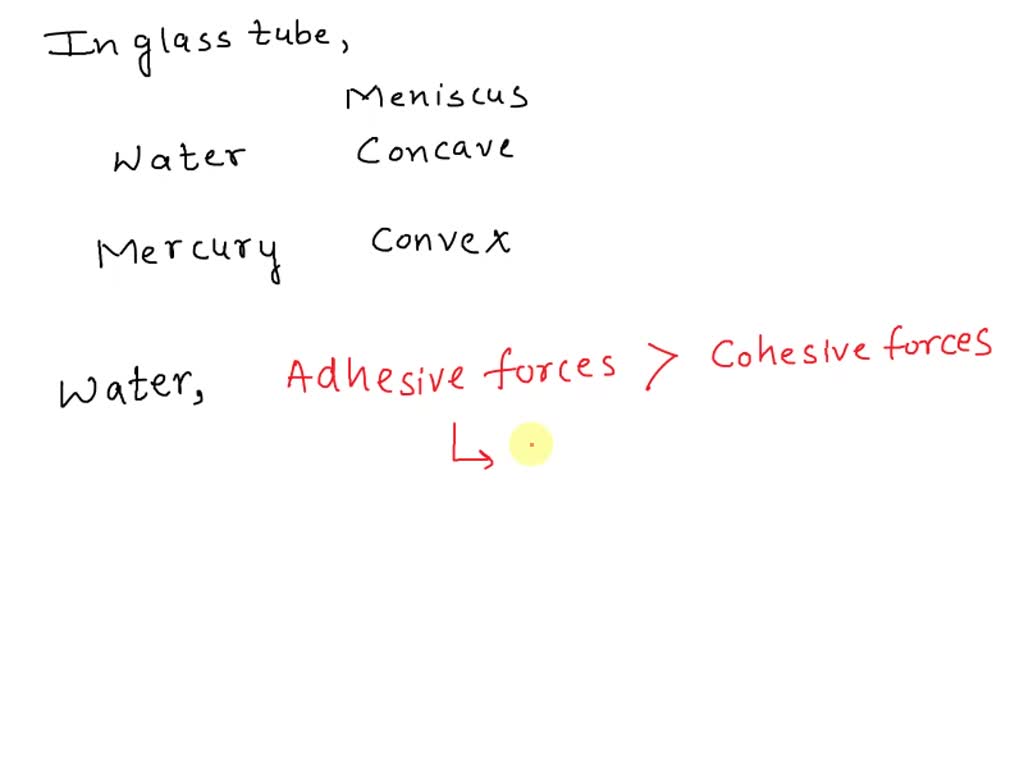 In glass tube,
Meniscus
Water Concave
Mercury Convex
Water, Adhesive forces > Cohesive forces